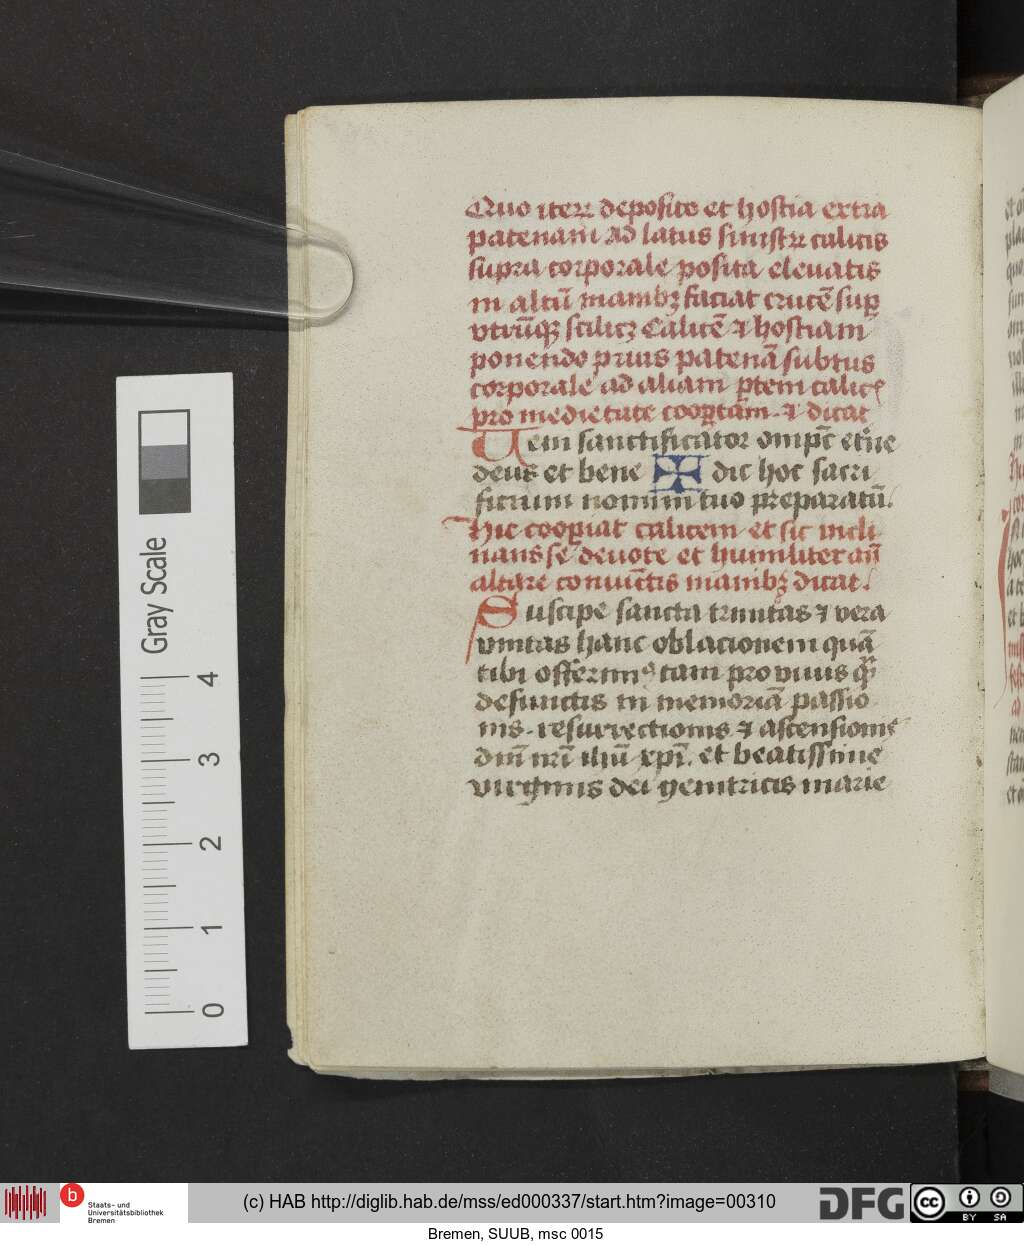 Quo iterꝝ deposito et hostia extra
patenam ad latus sinistrꝝ calicis
supra corporale posita eleuatis
in altū manibꝫ faciat crucē suꝑ
vtrūqꝫ scilicꝫ Calicē ⁊ hostiam
ponendo prius patenā subtus
corporale ad aliam ꝑtem calicꝭ
pro medietate cooꝑtam. ⁊ dicat
Ueni sanctificator omīpc̄ et̄ne
deus et bene ✠ dic hoc sacri
ficium nomini tuo preparatū.
Hic cooꝑiat calicem et sic incli
nans se deuote et humiliter an̄
altare coniunctis manibꝫ dicat.
Suscipe sancta trinitas ⁊ vera
vnitas hanc oblacionem quā
tibi offerimꝰ tam pro viuis qͣꝫ
defunctis in memoriā passio
nis. resurrectionis ⁊ ascensionis
dn̄i nr̄i ihū xpī. et beatissime
virginis dei genitricis marie
Gray Scale
4
3
2
1
0
b
Staats- und
Universitätsbibliothek
Bremen
(c) HAB http://diglib.hab.de/mss/ed000337/start.htm?image=00310
DFG
cc
BY SA
Bremen, SUUB, msc 0015